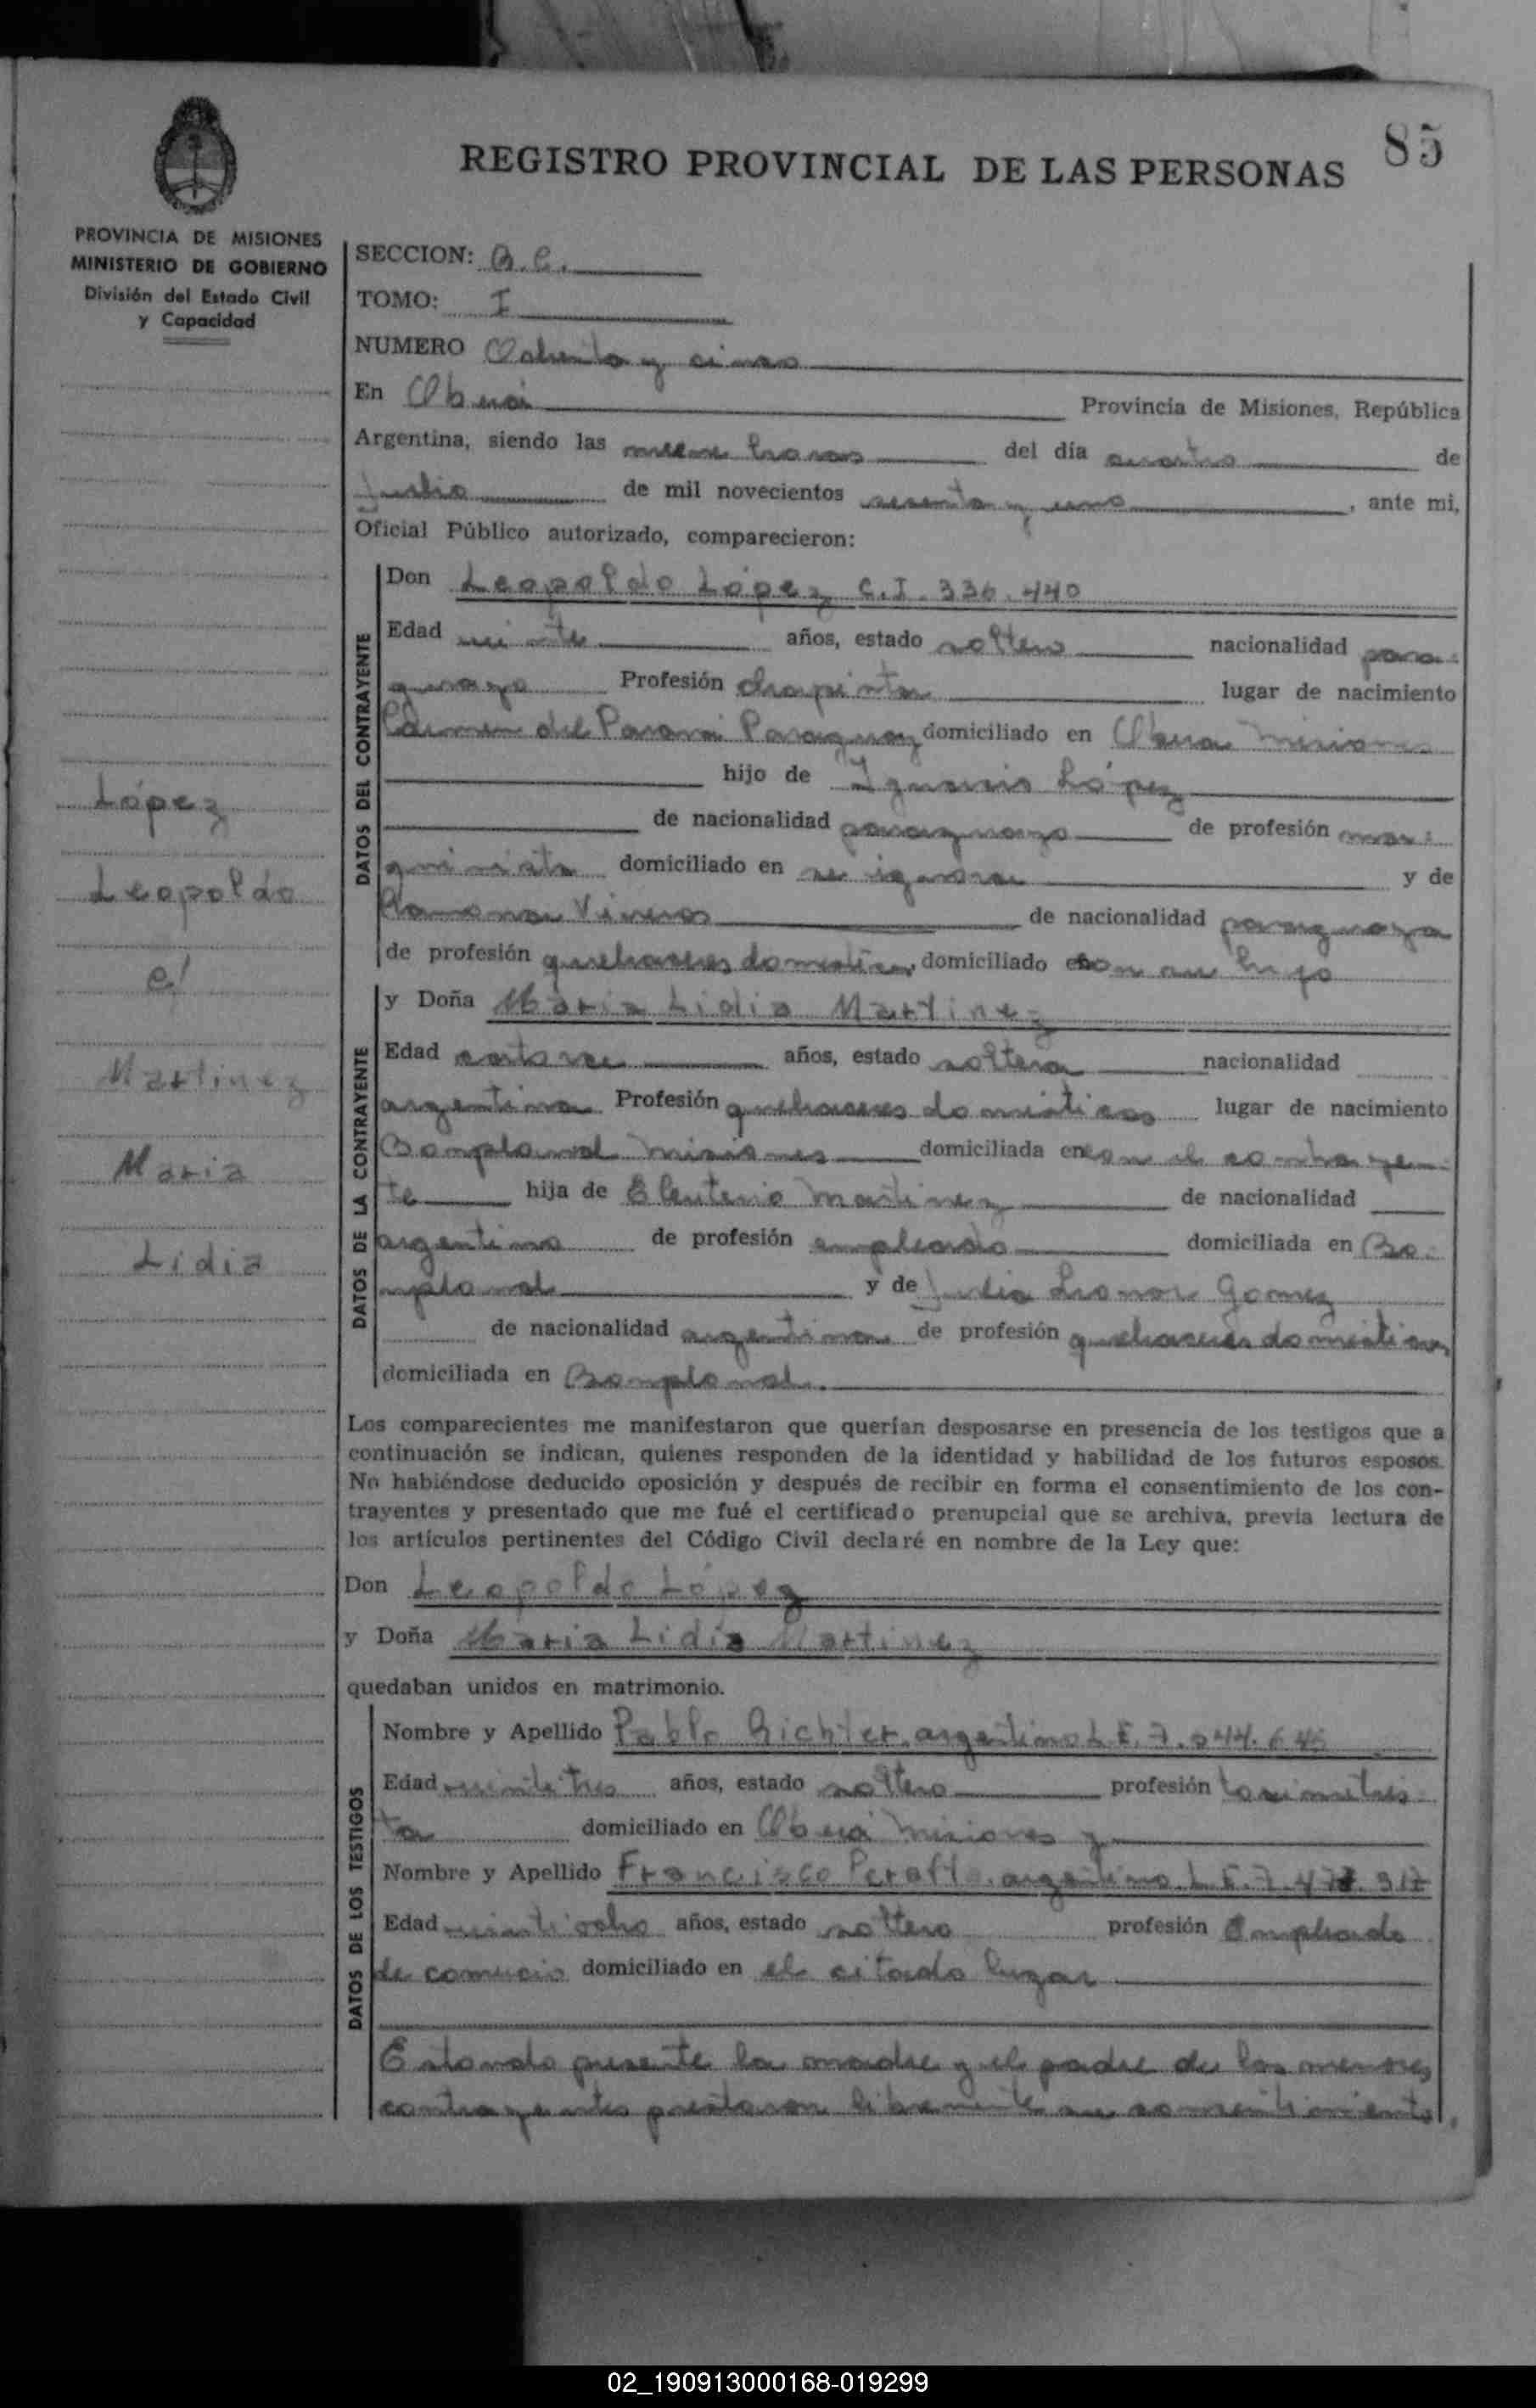 85
REGISTRO PROVINCIAL DE LAS PERSONAS
PROVINCIA DE MISIONES
MINISTERIO DE GOBIERNO
División del Estado Civil
y Capacidad
López
Leopoldo
c/
Martinez
Maria
Lidia
SECCION: B.C.
TOMO: I
NUMERO Ochenta y cinco
En Oberá Provincia de Misiones, República
Argentina, siendo las nueve horas del día cuatro de
Julio de mil novecientos sesenta y uno, ante mi,
Oficial Público autorizado, comparecieron:
DATOS DEL CONTRAYENTE
Don Leopoldo López C.I. 336.440
Edad veinte años, estado soltero nacionalidad para-
guayo Profesión lugar de nacimiento
Carmen del Paraná Paraguay domiciliado en Oberá Misiones
hijo de Ignacio López
de nacionalidad paraguayo de profesión maq-
uinista domiciliado en se ignora y de
Ramona de nacionalidad paraguaya
de profesión quehaceres domesticos, domiciliado con su hijo
DATOS DE LA CONTRAYENTE
y Doña Maria Lidia Martinez
Edad catorce años, estado soltera nacionalidad
argentina Profesión quehaceres domésticos lugar de nacimiento
Bonpland Misiones domiciliada en con el contrayen-
te hija de Eleuterio Martinez de nacionalidad
argentino de profesión empleado domiciliada en Bo-
npland y de Julia Leonor Gomez
de nacionalidad argentina de profesión quehaceres domésticos
domiciliada en Bonpland.
Los comparecientes me manifestaron que querían desposarse en presencia de los testigos que a
continuación se indican, quienes responden de la identidad y habilidad de los futuros esposos.
No habiéndose deducido oposición y después de recibir en forma el consentimiento de los con-
trayentes y presentado que me fué el certificado prenupcial que se archiva, previa lectura de
los artículos pertinentes del Código Civil declaré en nombre de la Ley que:
Don Leopoldo López
y Doña Maria Lidia Martinez
quedaban unidos en matrimonio.
DATOS DE LOS TESTIGOS
Nombre y Apellido Pablo Richter argentino L.E. 7.
Edad veinte tres años, estado soltero profesión taximetris-
ta domiciliado en Oberá Misiones y
Nombre y Apellido Francisco argentino L.E. 7.
Edad veinti ocho años, estado soltero profesión Empleado
de comercio domiciliado en el citado lugar
Estando presente la madre y el padre de los menores
contrayentes prestaron libremente su consentimiento.
02_190913000168-019299